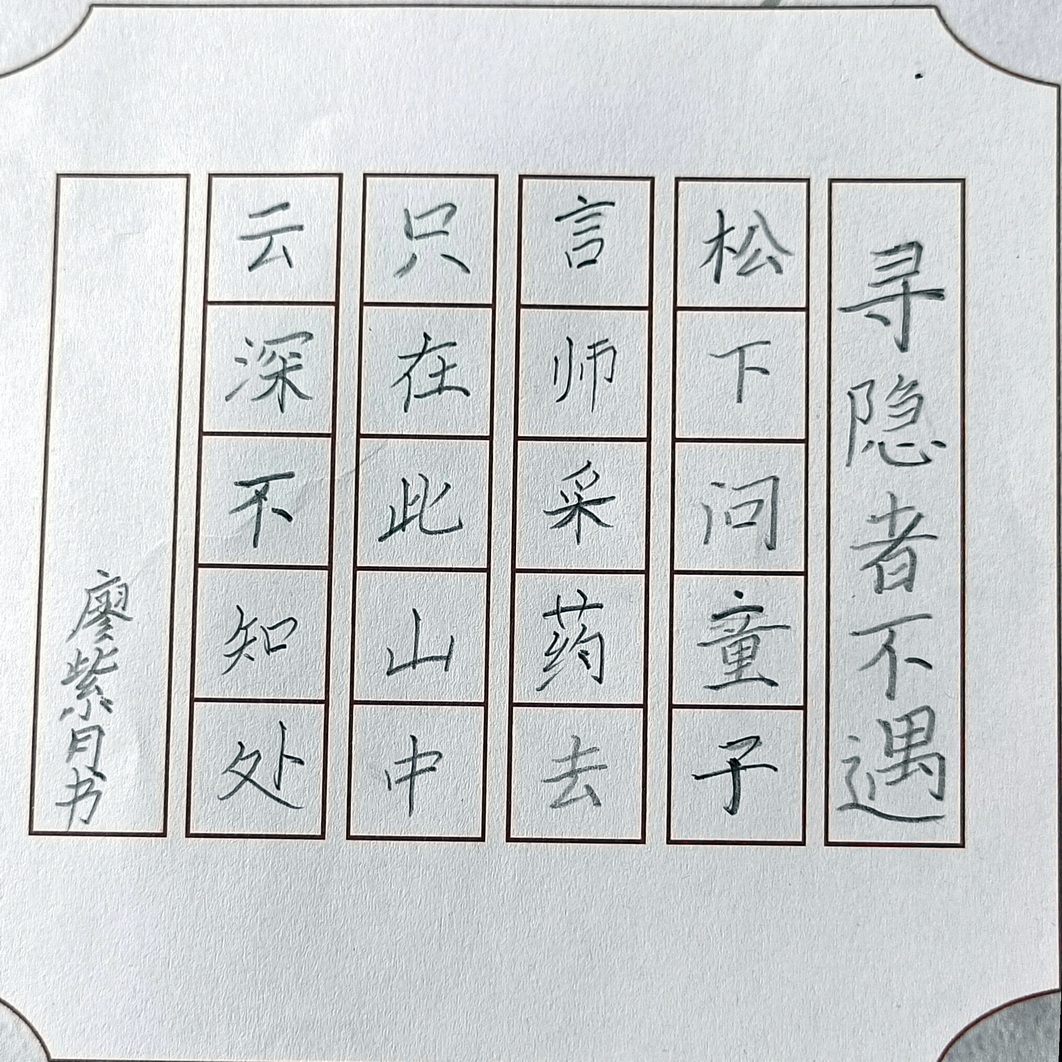 寻隐者不遇
松下问童子
言师采药去
只在此山中
云深不知处
廖紫月书